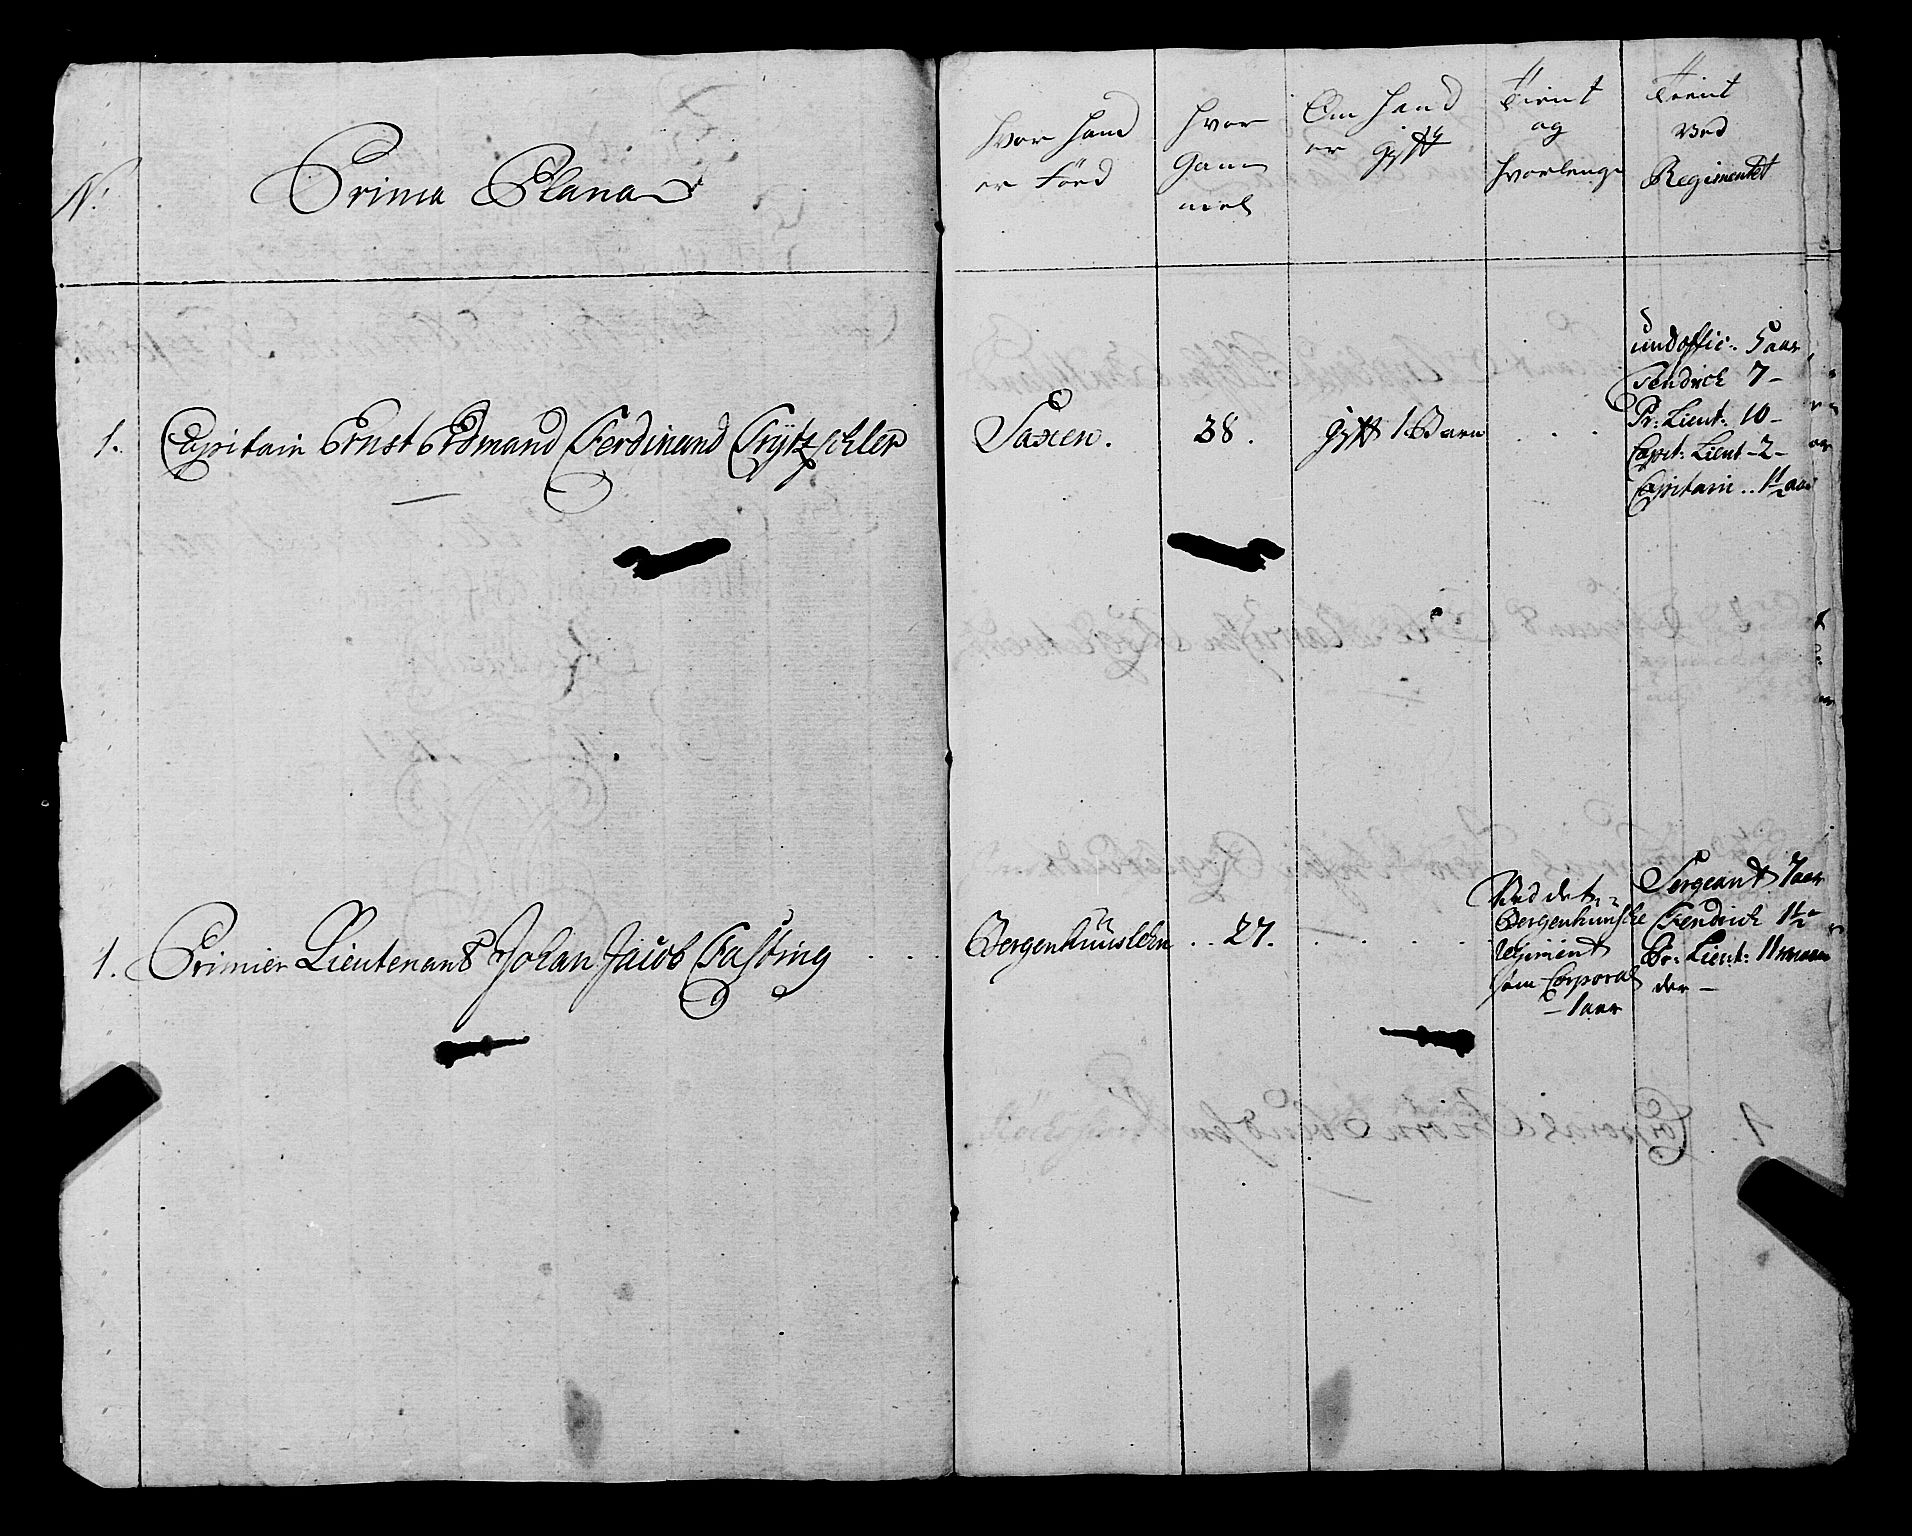 N.
Prima Plana
Hvor hand
er Fôed
Hvor
Gam
mel
Om Hand
er gifft
Tient
og
Hvorlenge
Tient
ved
Regimentet
1. Capitain Ernst Erdmand Ferdinand Trÿtzschler
Saxen.
38.
gifft 1. Barn
undoffic: 5 aar
Fendrick 7 -
Pr: Lieut: 10 -
Capit: Lieut - 2 -
Capitain .. 1½ aar
1. Primier Lieutenant Johan Jacob Fasting
Bergenhuuslehn
27.
Ved det
Bergenhuuske
Regiment
som Corporal
- 1 aar
Sergeant 7 aar
Fendrick 1½ -
Pr: Lieut: 11 maane
der -